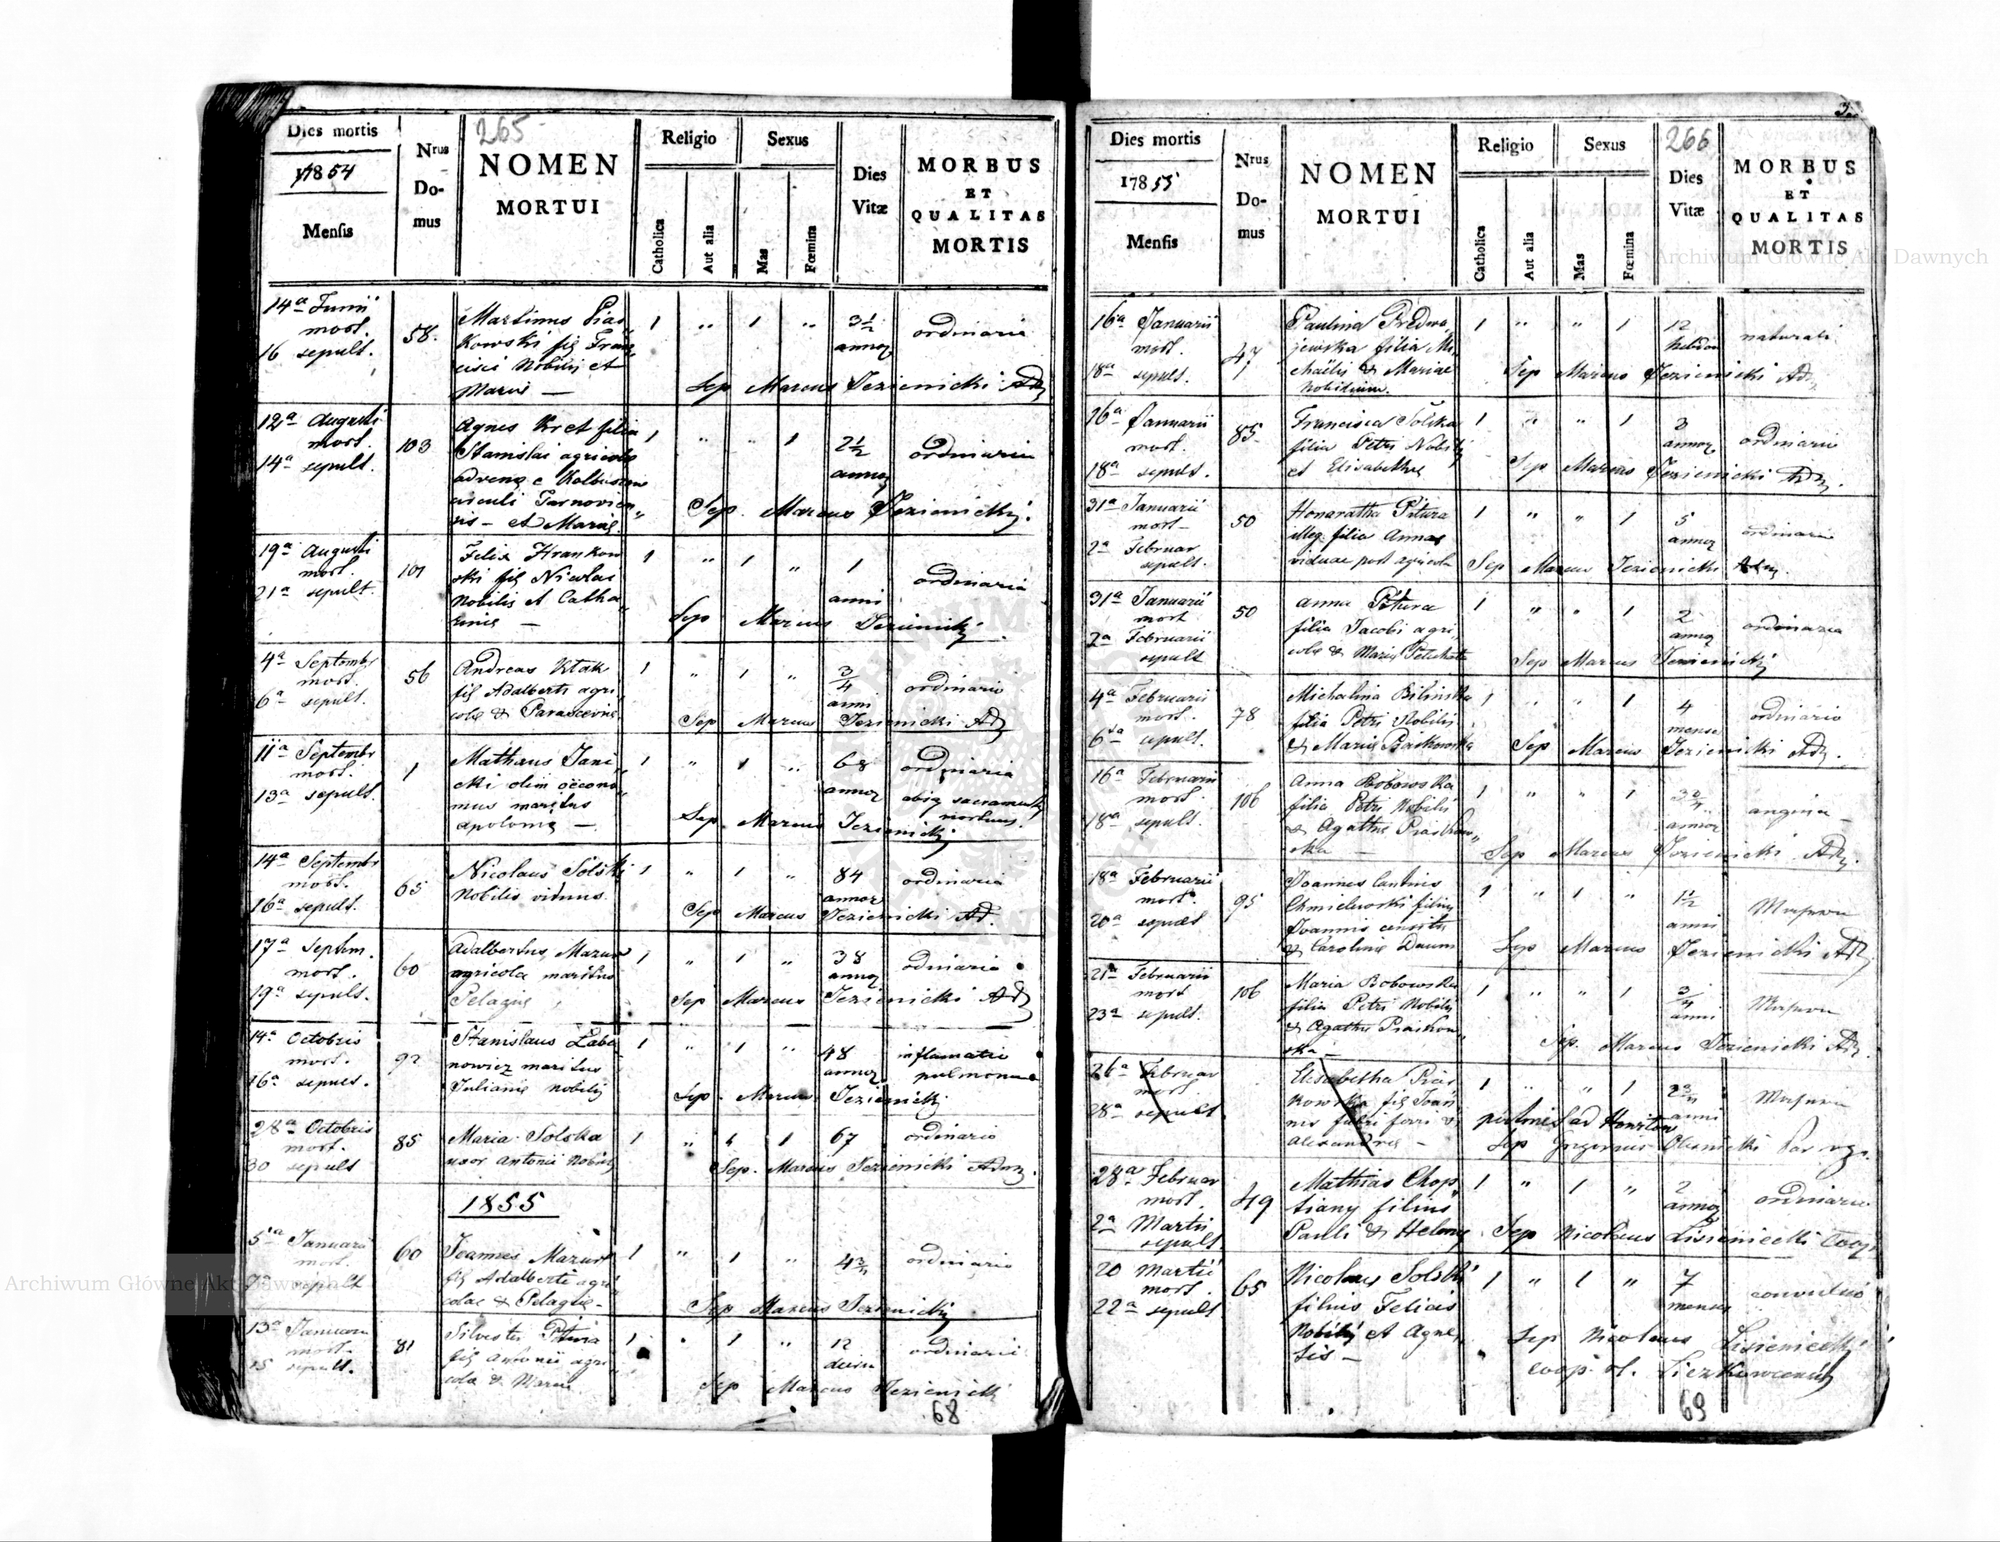 Dies mortis
1854
Mensis
Nrus
Do-
mus
265
NOMEN
MORTUI
Religio
Catholica
Aut alia
Sexus
Mas
Fœmina
Dies
Vitæ
MORBUS
ET
QUALITAS
MORTIS
14a Junii
mort.
16 sepult.
58.
Martinus Pias
kowski filg Fran
cisci Nobilis et
Maria —
1 " 1 "
3 1/2
annor
ordinaria
Sep Marcus Jezienicki Adm
12a Augusti
mort.
14a sepult.
103
Agnes Kret filia
Stanislai agricola
advena e Kolbuszow
circuli Tarnovien
sis — et Maria
1 " " 1
2 1/2
annor
ordinaria
Sep. Marcus Jezienicki.
19a Augusti
mort.
21a sepult.
101
Felix Hrankow
ski filg Nicolai
Nobilis et Catha
rinæ —
1 " 1 "
1
anni
ordinaria
Sep Marcus Jezienicki
4a Septembr
mort.
6a sepult.
56
Andreas Ktak
filg Adalberti agri
colæ & Parascevia
1 " 1 "
3/4
anni
ordinaria
Sep Marcus Jezienicki Adm
11a Septembr
mort.
13a sepult.
1
Mathæus Jani
cki olim œcono
mus maritus
Apolonia —
1 " 1 "
68
annor
ordinaria
absq sacramentis
mortuus.
Sep. Marcus Jezienicki
14a Septembr
mort.
16a sepult.
65
Nicolaus Solski
Nobilis viduus.
1 " 1 "
84
annor
ordinaria
Sep Marcus Jezienicki Ad.
17a Septem.
mort.
19a sepult.
60
Adalbertus Mazur
agricola maritus
Pelagiæ
1 " 1 "
38
annor
odinaria
Sep Marcus Jezienicki Adm
14a Octobris
mort.
16a sepult.
92
Stanislaus Laba
nowicz maritus
Julianæ nobilis
1 " 1 "
48
annor
inflamatio
pulmonum
Sep. Marcus Jezienicki
28a Octobris
mort.
30 sepult
85
Maria Solska
uxor Antonii Nobilis
1 " " 1
67
ordinaria
Sep. Marcus Jezienicki Adm.
1855
5ta Januarii
mort.
7a sepult
60
Joannes Mazur
filg Adalberti agri
colae & Pelagiæ —
1 " 1 "
ordinaria
Sep Marcus Jezienicki
13a Januarii
mort.
15 sepult.
81
Silvester Pitura
filg Antonii agri
colæ & Mariæ
1 " 1 "
12
ordinaria
Sep Marcus Jezienicki
68
3
Dies mortis
1785 55
Mensis
Nrus
Do-
mus
NOMEN
MORTUI
Religio
Catholica
Aut alia
Sexus
Mas
Fœmina
266
Dies
Vitæ
MORBUS
ET
QUALITAS
MORTIS
16a Januarii
mort.
18a sepult.
47
Paulina Predwo
jewska filia Mi
chaelis & Mariæ
Nobilium.
1 " " 1
12
hebdom
naturali
Sep Marcus Jezienicki Adm
16a Januarii
mort.
18a sepult.
85
Francisca Solska
filia Petri Nobilis
et Elisabethæ
1 " " 1
3
annor
ordinaria
Sep Marcus Jezienicki Adm.
31a Januarii
mort —
2a Februar
sepult.
50
Honoratha Pitura
illeg. filia Annæ
viduae post agricola
1 " " 1
5
annor
ordinaria
Sep Marcus Jezienicki Adm.
31a Januarii
mort
2a Februarii
sepult
50
Anna Pitura
filia Jacobi agri
colæ & Mariæ
1 " " 1
2
annor
ordinaria
Sep Marcus Jezienicki
4a Februarii
mort.
6ta sepult.
78
Michalina Bilinska
filia Petri Nobilis
& Mariæ
1 " " 1
4
mens
ordinario
Sep Marcus Jezienicki Adm.
16a Februarii
mort.
18a sepult.
106
Anna Bobowska
filia Petri Nobilis
& Agathæ Piaskow
ska —
1 " " 1
3 3/4
annor
angina —
Sep Marcus Jezienicki Adm.
18a Februarii
mort.
20a sepult
95
Joannes Cantius
Chmielewski filius
Joannis
& Carolina Daum
1 " 1 "
1 1/2
anni
Sep Marcus Jezienicki Adm
21a Februarii
mort
23a sepult.
106
Maria Bobowska
filia Petri Nobilis
& Agathæ Piaskow
ska —
1 " " 1
3/4
anni
Sep. Marcus Jezienicki Adm.
26a Februar
mort
28a sepult
Elisabetha Pias
kowska filg Joan
nis fabri ferri &
Alexandræ —
1 " " 1
anni
Sep
28a Februar
mort.
2a Martii
sepult
49
Mathias Chop
tiany filius
Pauli & Helenæ
1 " 1 "
2
annor
ordinaria
Sep Nicolaus Lisieniecki Coop.
20 Martii
mort.
22a sepult
65
Nicolaus Solski
filius Felicis
Nobilis et Agne,
tis —
1 " 1 "
7
menses
convulsio
Sep Nicolaus Lisieniecki
coop. Liczkowcensis
69
Archiwum Główne Akt Dawnych
Archiwum Główne Akt Dawnych